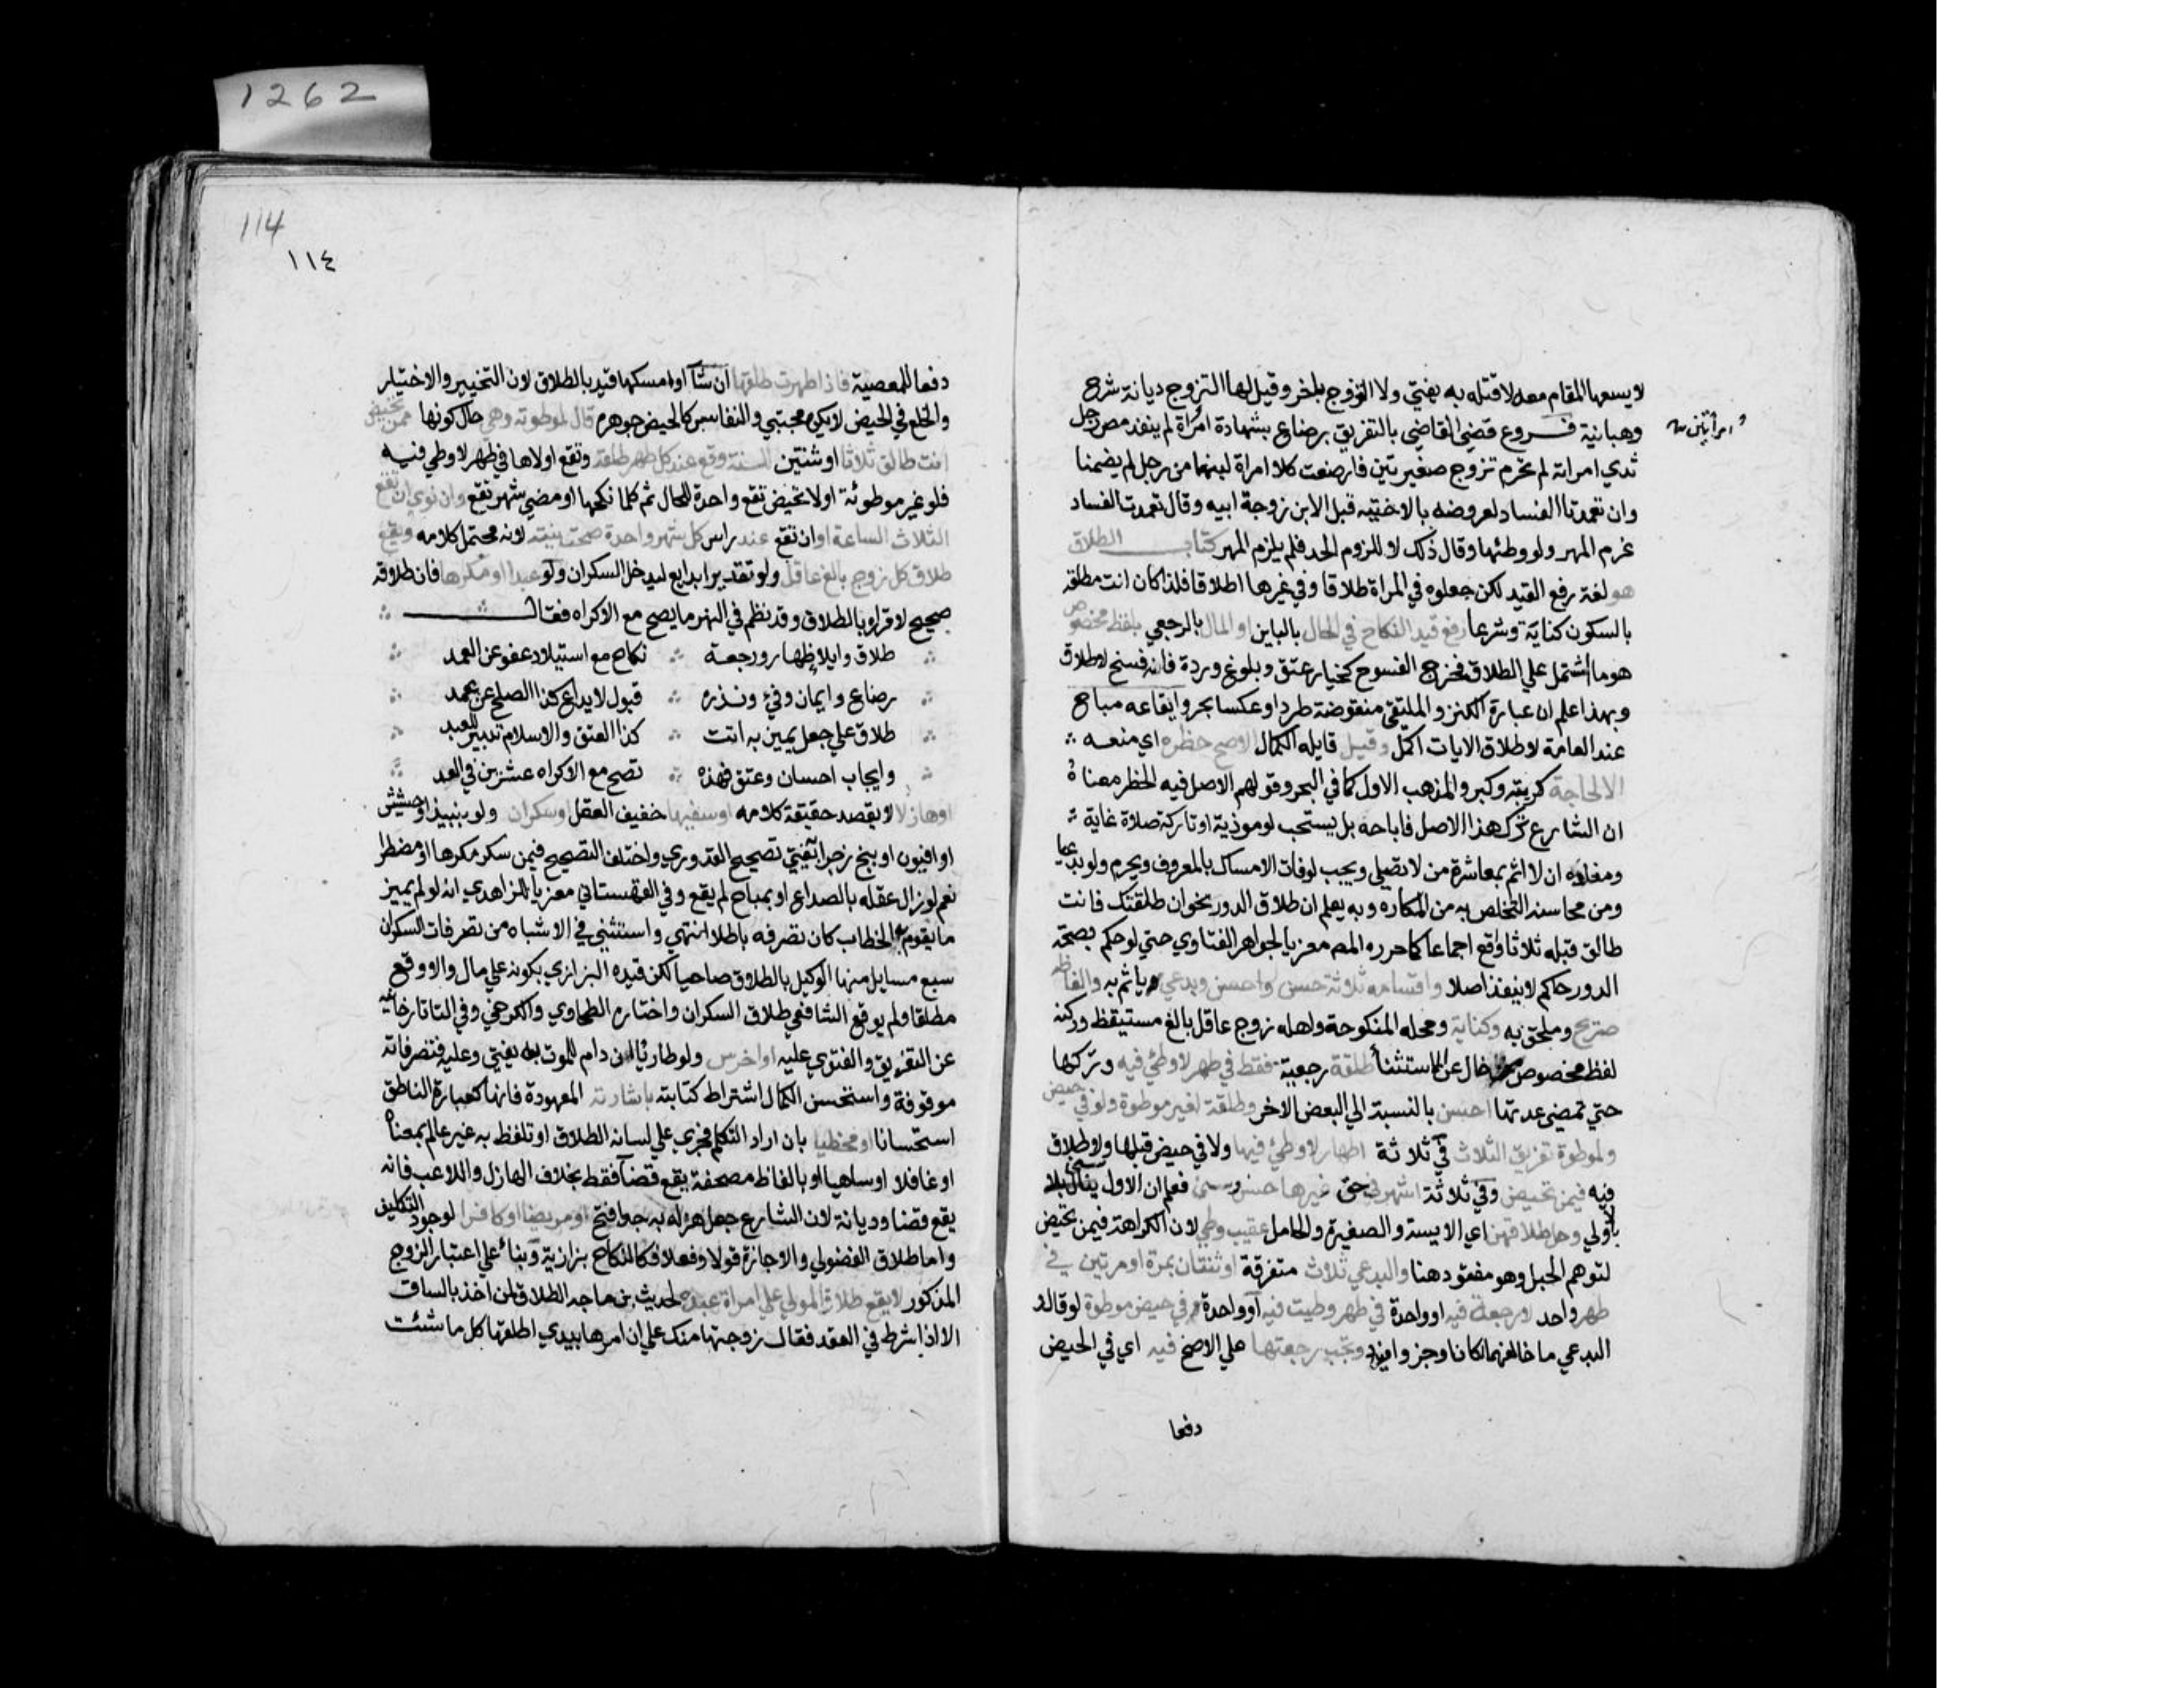 1262
لا يسعها المقام معه لا قتله به يفتي ولا التزوج باخر وقيل لها التزوج ديانة شرح
وهبانية فروع قضي القاضي بالتفريق برضاع بشهادة امراة لم ينفذ مص رجل
وامراتين
ثدي امراته لم تحرم تزوج صغيرتين فارضعت كلا امراة لبنهما من رجل لم يضمنا
وان تعمدتا الفساد لعروضه بالاختيه قبل الابن زوجة ابيه وقال تعمدت الفساد
غرم المهر ولو وطئها وقال ذلك لا للزوم الحد فلم يلزم المهر كتاب الطلاق
هو لغة رفع القيد لكن جعلوه في المراة طلاقا وفي غيرها اطلاقا فلذا كان انت مطلقه
بالسكون كناية وشرعا رفع قيد النكاح في الحال بالباين او المال بالرجعي بلفظ مخصوص
هو ما اشتمل علي الطلاق فخرج الفسوخ كخيار عتق وبلوغ وردة فانه فسخ لا طلاق
وبهذا علم ان عبارة الكنز والملتقي منقوضة طردا وعكسا بحر وايقاعه مباح
عند العامة لاطلاق الايات اكمل وقيل قايله الكمال الاصح حظره اي منعه
الا لحاجة كريبة وكبر والمذهب الاول كما في البحر وقولهم الاصل فيه الحظر معناه
ان الشارع ترك هذا الاصل فاباحه بل يستحب لو موذية او تاركة صلاة غاية
ومفاده ان لا اثم بمعاشرة من لا تصلي ويجب لو فات الامساك بالمعروف ويحرم ولو بدعيا
ومن محاسنه التخلص به من المكاره وبه يعلم ان طلاق الدور بخوان طلقتك فانت
طالق قبله ثلاثا واقع اجماعا كما حرره المص معزيا لجواهر الفتاوي حتي لو حكم بصحة
الدور حاكم لا ينفذ اصلا واقسامه ثلاثة حسن واحسن وبدعي ياثم به والفاظه
صريح وملحق به وكناية ومحله المنكوحة واهله زوج عاقل بالغ مستيقظ وركنه
لفظ مخصوص خال عن الاستثنا طلقة رجعية فقط في طهر لا وطئ فيه وتركها
حتي تمضي عدتها احسن بالنسبة الي البعض الاخر وطلقة لغير موطوة ولو في حيض
ولموطوة تفريق الثلاث في ثلاثة اطهار لا وطئ فيها ولا في حيض قبلها ولا طلاق
فيه فيمن تحيض وفي ثلاثة اشهر في حق غيرها حسن وسني فعلم ان الاول
باولي وحل طلاقهن اي الايسة والصغيرة والحامل عقيب وطي لان الكراهة فيمن تحيض
لتوهم الحبل وهو مفقود هنا والبدعي ثلاث متفرقة او ثنتان بمرة او مرتين في
طهر واحد لا رجعة فيه او واحدة في طهر وطيت فيه او واحدة في حيض موطوة لو قال و
البدعي ما خالفهما لكان اوجز وافيد وتجب رجعتها علي الاصح فيه اي في الحيض
دفعا
114
١١٤
دفعا للمعصية فاذا طهرت طلقها ان شا او امسكها قيد بالطلاق لان التخيير والاختيار
والخلع في الحيض لا يكره مجتبي والنفاس كالحيض جوهرم قال لموطوته وهي حال كونها ممن تحيض
انت طالق ثلاثا او ثنتين للسنة وقع عند كل طهر طلقة وتقع اولاها في طهر لا وطي فيه
فلو غير موطوئة او لا تحيض تقع واحدة للحال ثم كلما نكحها او مضي شهر تقع وان نوي ان تقع
الثلاث الساعة او ان تقع عند راس كل شهر واحدة صحت نيته لانه محتمل كلامه ويقع
طلاق كل زوج بالغ عاقل ولو تقديرا بدايع ليدخل السكران ولو عبدا او مكرها فان طلاقه
صحيح لا قراره بالطلاق وقد نظم في النهر ما يصح مع الاكراه فقال
طلاق وايلا ظهار ورجعة نكاح مع استيلاد عفو عن العمد
رضاع وايمان وفي ونذره قبول لايداع كذا الصلح عن عمد
طلاق علي جعل يمين به اتت كذا العتق والاسلام تدبير للعبد
وايجاب احسان وعتق فهذه تصح مع الاكراه عشرين في العد
او هازلا لا يقصد حقيقة كلامه او سفيها خفيف العقل او سكران ولو بنبيذ او حشيش
او افيون او بنج زجرا به يفتي تصحيح القدوري واختلف التصحيح فيمن سكر مكرها او مضطرا
نعم لو زال عقله بالصداع او بمباح لم يقع وفي القهستاني معزيا للزاهدي انه لو لم يميز
ما يقوم به الخطاب كان تصرفه باطلا انتهي واستثني في الاشباه من تصرفات السكران
سبع مسايل منها الوكيل بالطلاق صاحيا لكن قيده البزازي بكونه علي مال والا وقع
مطلقا ولم يوقع الشافعي طلاق السكران واختاره الطحاوي والكرخي وفي التاتارخانيه
عن التفريق والفتوي عليه او اخرس ولو طاريا ان دام للموت به يفتي وعليه فتصرفاته
موقوفة واستحسن الكمال اشتراط كتابته باشارته المعهودة فانها كعبارة الناطق
استحسانا او مخطيا بان اراد التكلم فجري علي لسانه الطلاق او تلفظ به غير عالم بمعناه
او غافلا او ساهيا او بالفاظ مصحفة يقع قضا فقط بخلاف الهازل واللاعب فانه
يقع قضا وديانة لان الشارع جعل هزله به جدا فتح او مريضا او كافرا لوجود التكليف
واما طلاق الفضولي والاجازة قولا وفعلا فكالنكاح بزازية وبناء علي اعتبار الزوج
المذكور لا يقع طلاق المولي علي امراة عبده لحديث بن ماجه الطلاق لمن اخذ بالساق
الا اذا شرط في العقد فقال زوجتها منك علي ان امرها بيدي اطلقها كل ما شئت